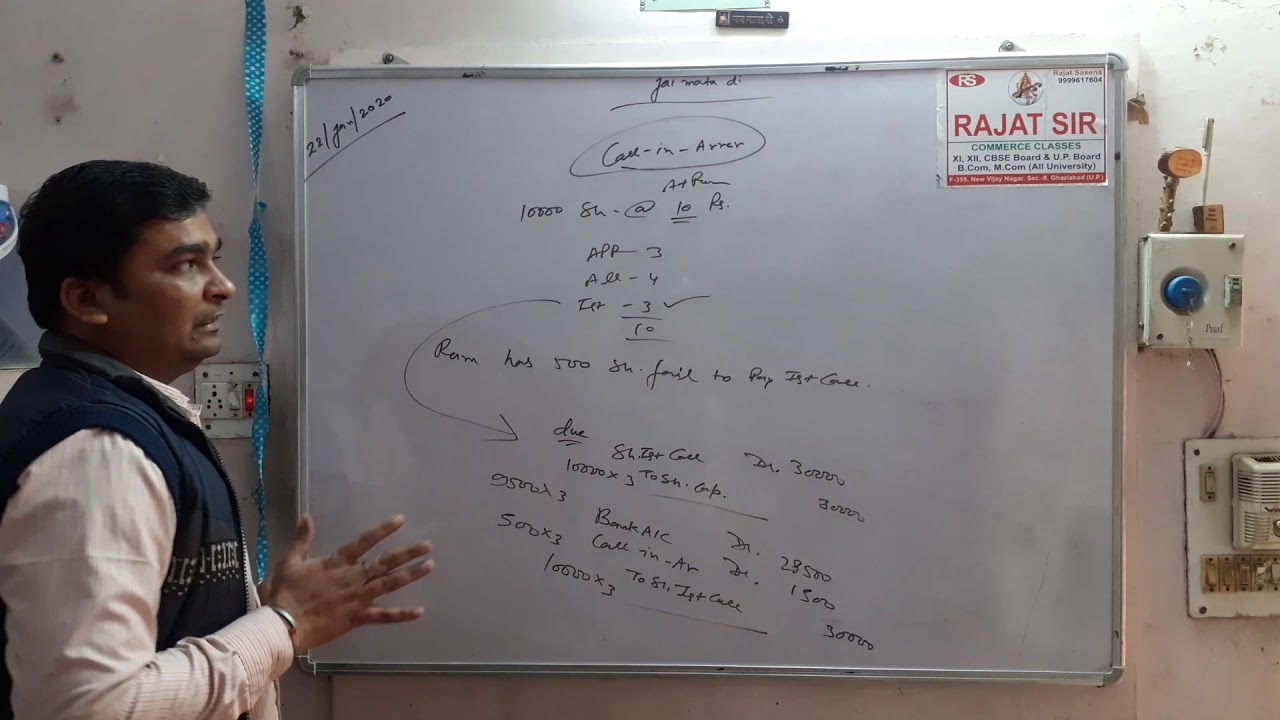 Jai mata di
22/Jan/2020
Call-in-Arrer
At Prem
10000 Sh. @ 10 Rs.
APP - 3
All - 4
Ist - 3 ✓
10
Ram has 500 Sh. fail to Pay Ist Call.
due
Sh. Ist Call Dr. 30000
10000x3 To Sh. Cap. 30000
9500x3 Bank A/C Dr. 28500
500x3 Call-in-Arr Dr. 1500
10000x3 To Sh. Ist Call 30000
RS
Rajat Saxena
9999617604
RAJAT SIR
COMMERCE CLASSES
XI, XII, CBSE Board & U.P. Board
B.Com, M.Com (All University)
F-355, New Vijay Nagar, Sec.-9, Ghaziabad (U.P.)
Pearl